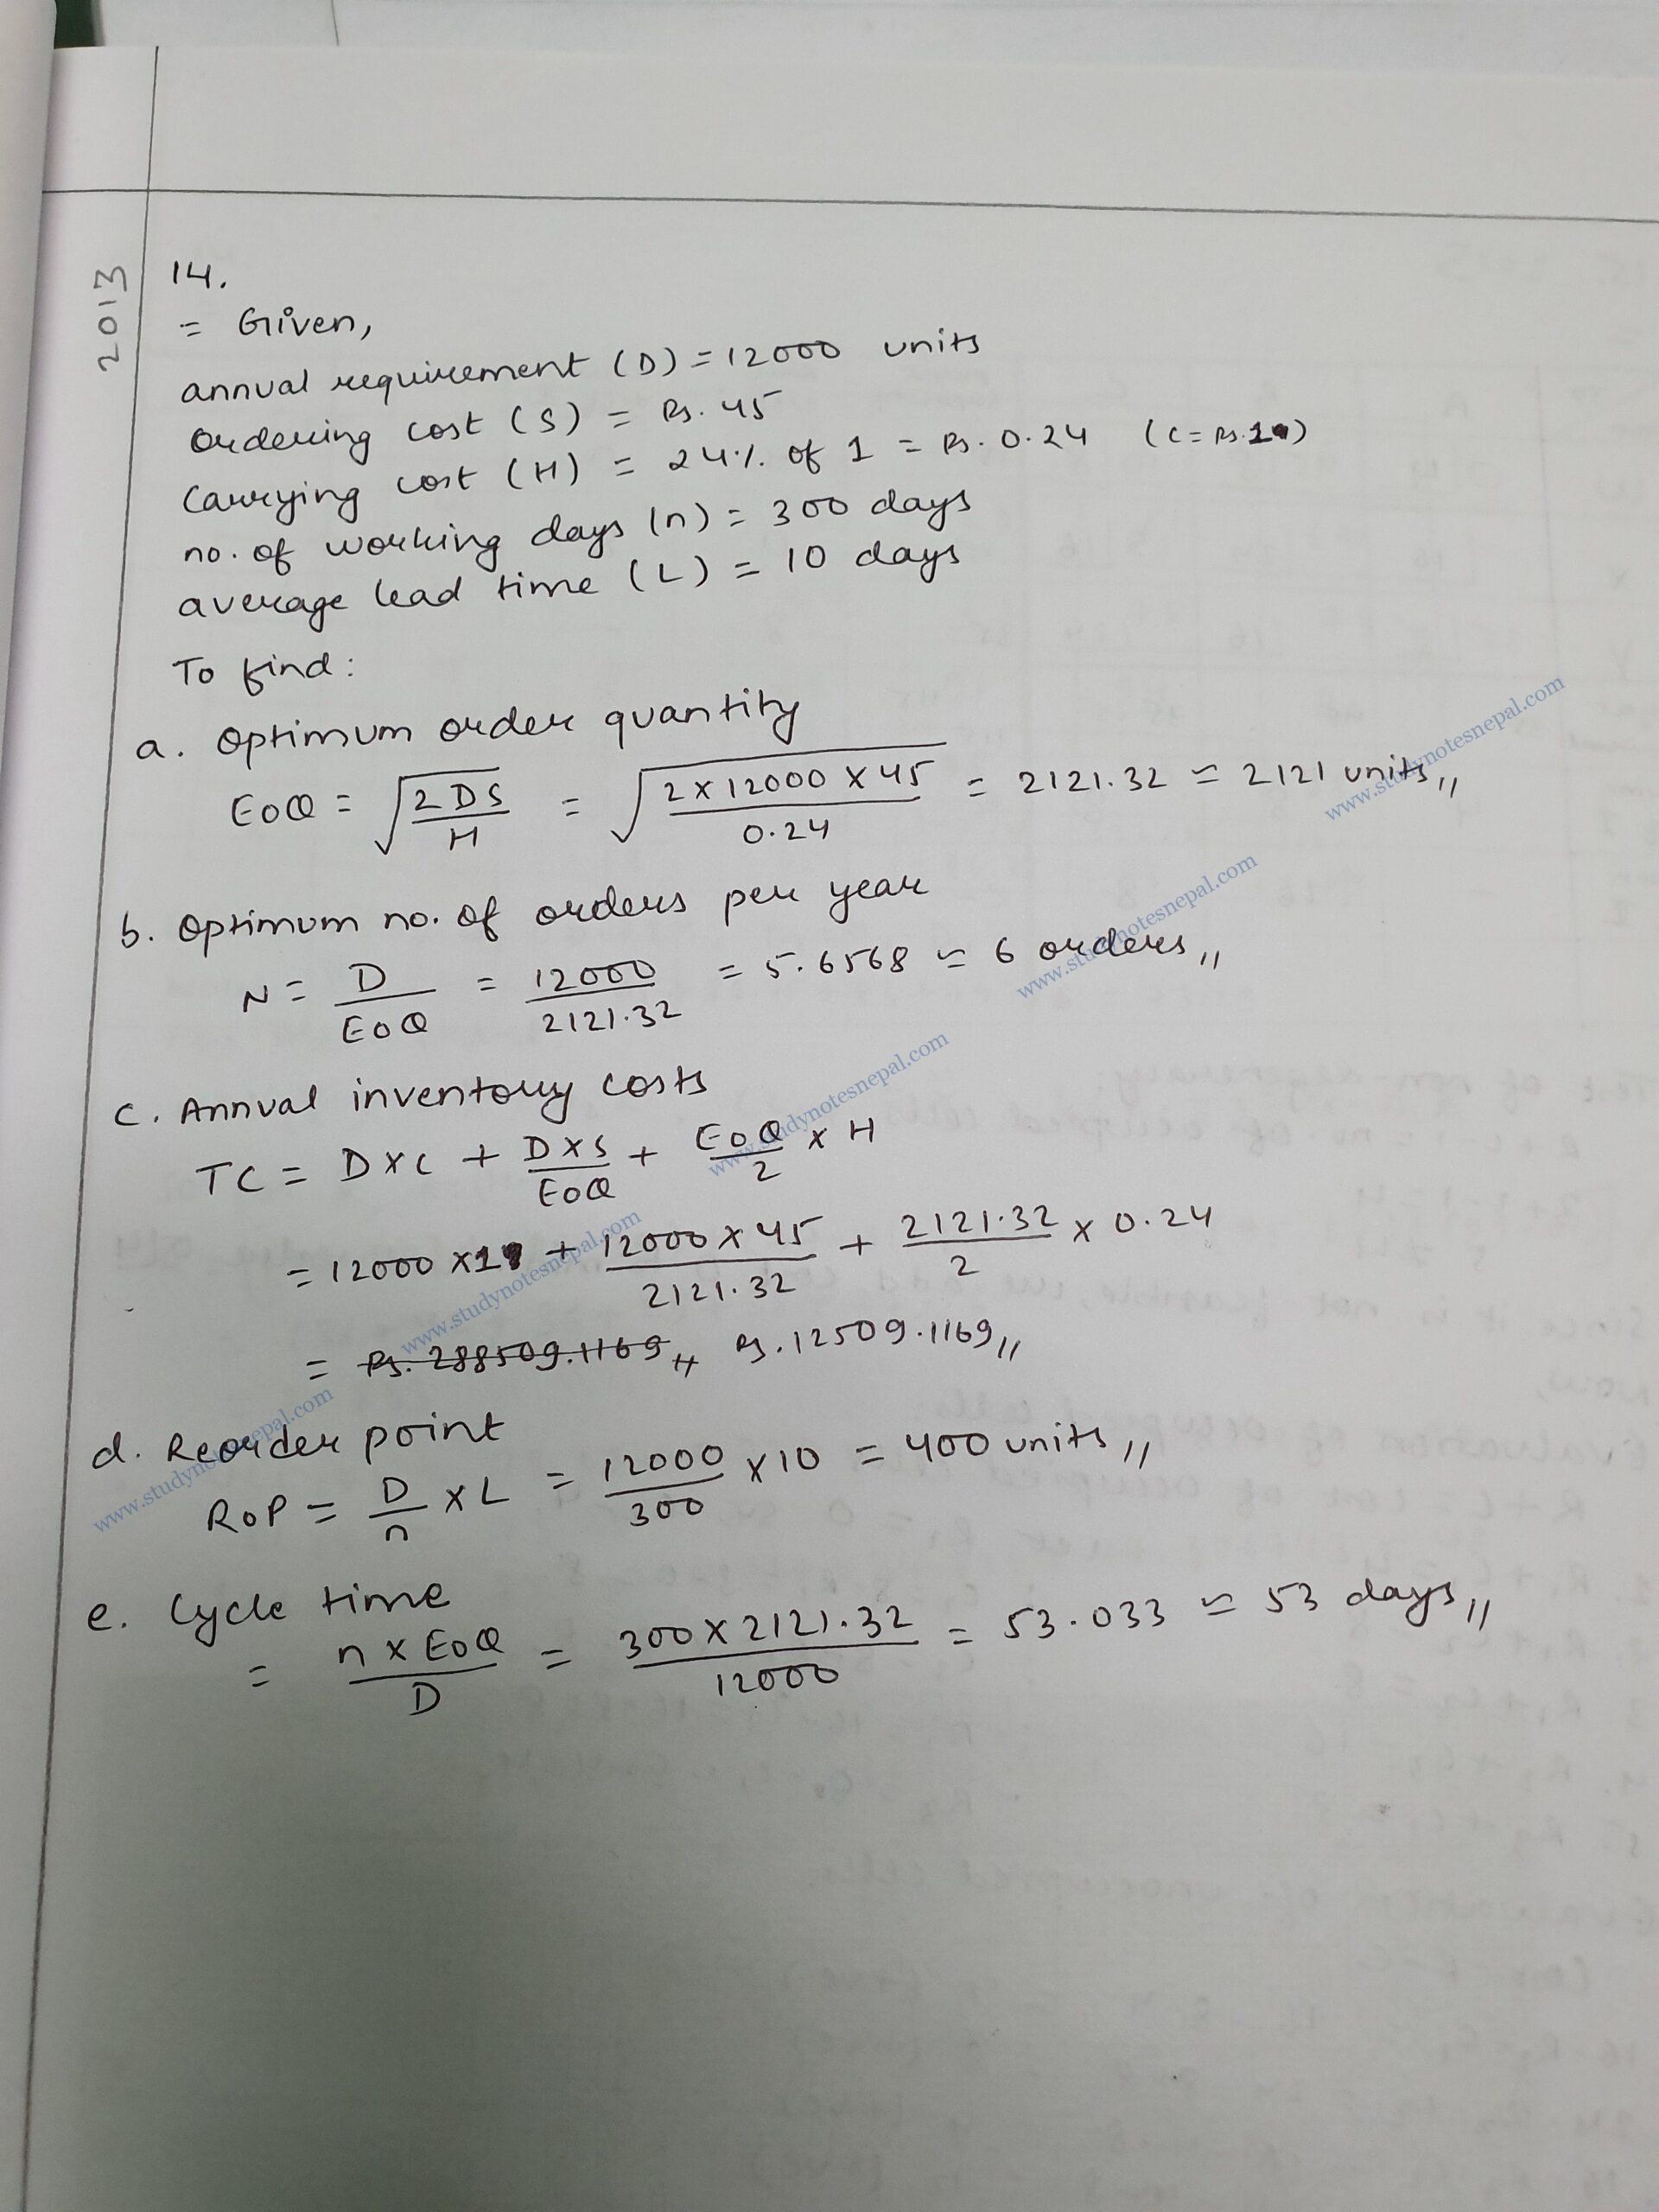 2013
14.
= Given,
annual requirement (D) = 12000 units
ordering cost (S) = Rs. 45
carrying cost (H) = 24% of 1 = Rs. 0.24 (C = Rs. 1)
no. of working days (n) = 300 days
average lead time (L) = 10 days
To find:
a. Optimum order quantity
EOQ = √(2DS/H) = √(2 × 12000 × 45/0.24) = 2121.32 ≈ 2121 units,,
www.studynotesnepal.com
b. Optimum no. of orders per year
N = D/EOQ = 12000/2121.32 = 5.6568 ≈ 6 orders,,
www.studynotesnepal.com
c. Annual inventory costs
TC = D×C + D×S/EOQ + EOQ/2 × H
www.studynotesnepal.com
= 12000 × 1 + 12000 × 45/2121.32 + 2121.32/2 × 0.24
www.studynotesnepal.com
= Rs. 288509.1169,, Rs. 12509.1169,,
d. Reorder point
ROP = D/n × L = 12000/300 × 10 = 400 units,,
www.studynotesnepal.com
e. Cycle time
= n × EOQ/D = 300 × 2121.32/12000 = 53.033 ≈ 53 days,,